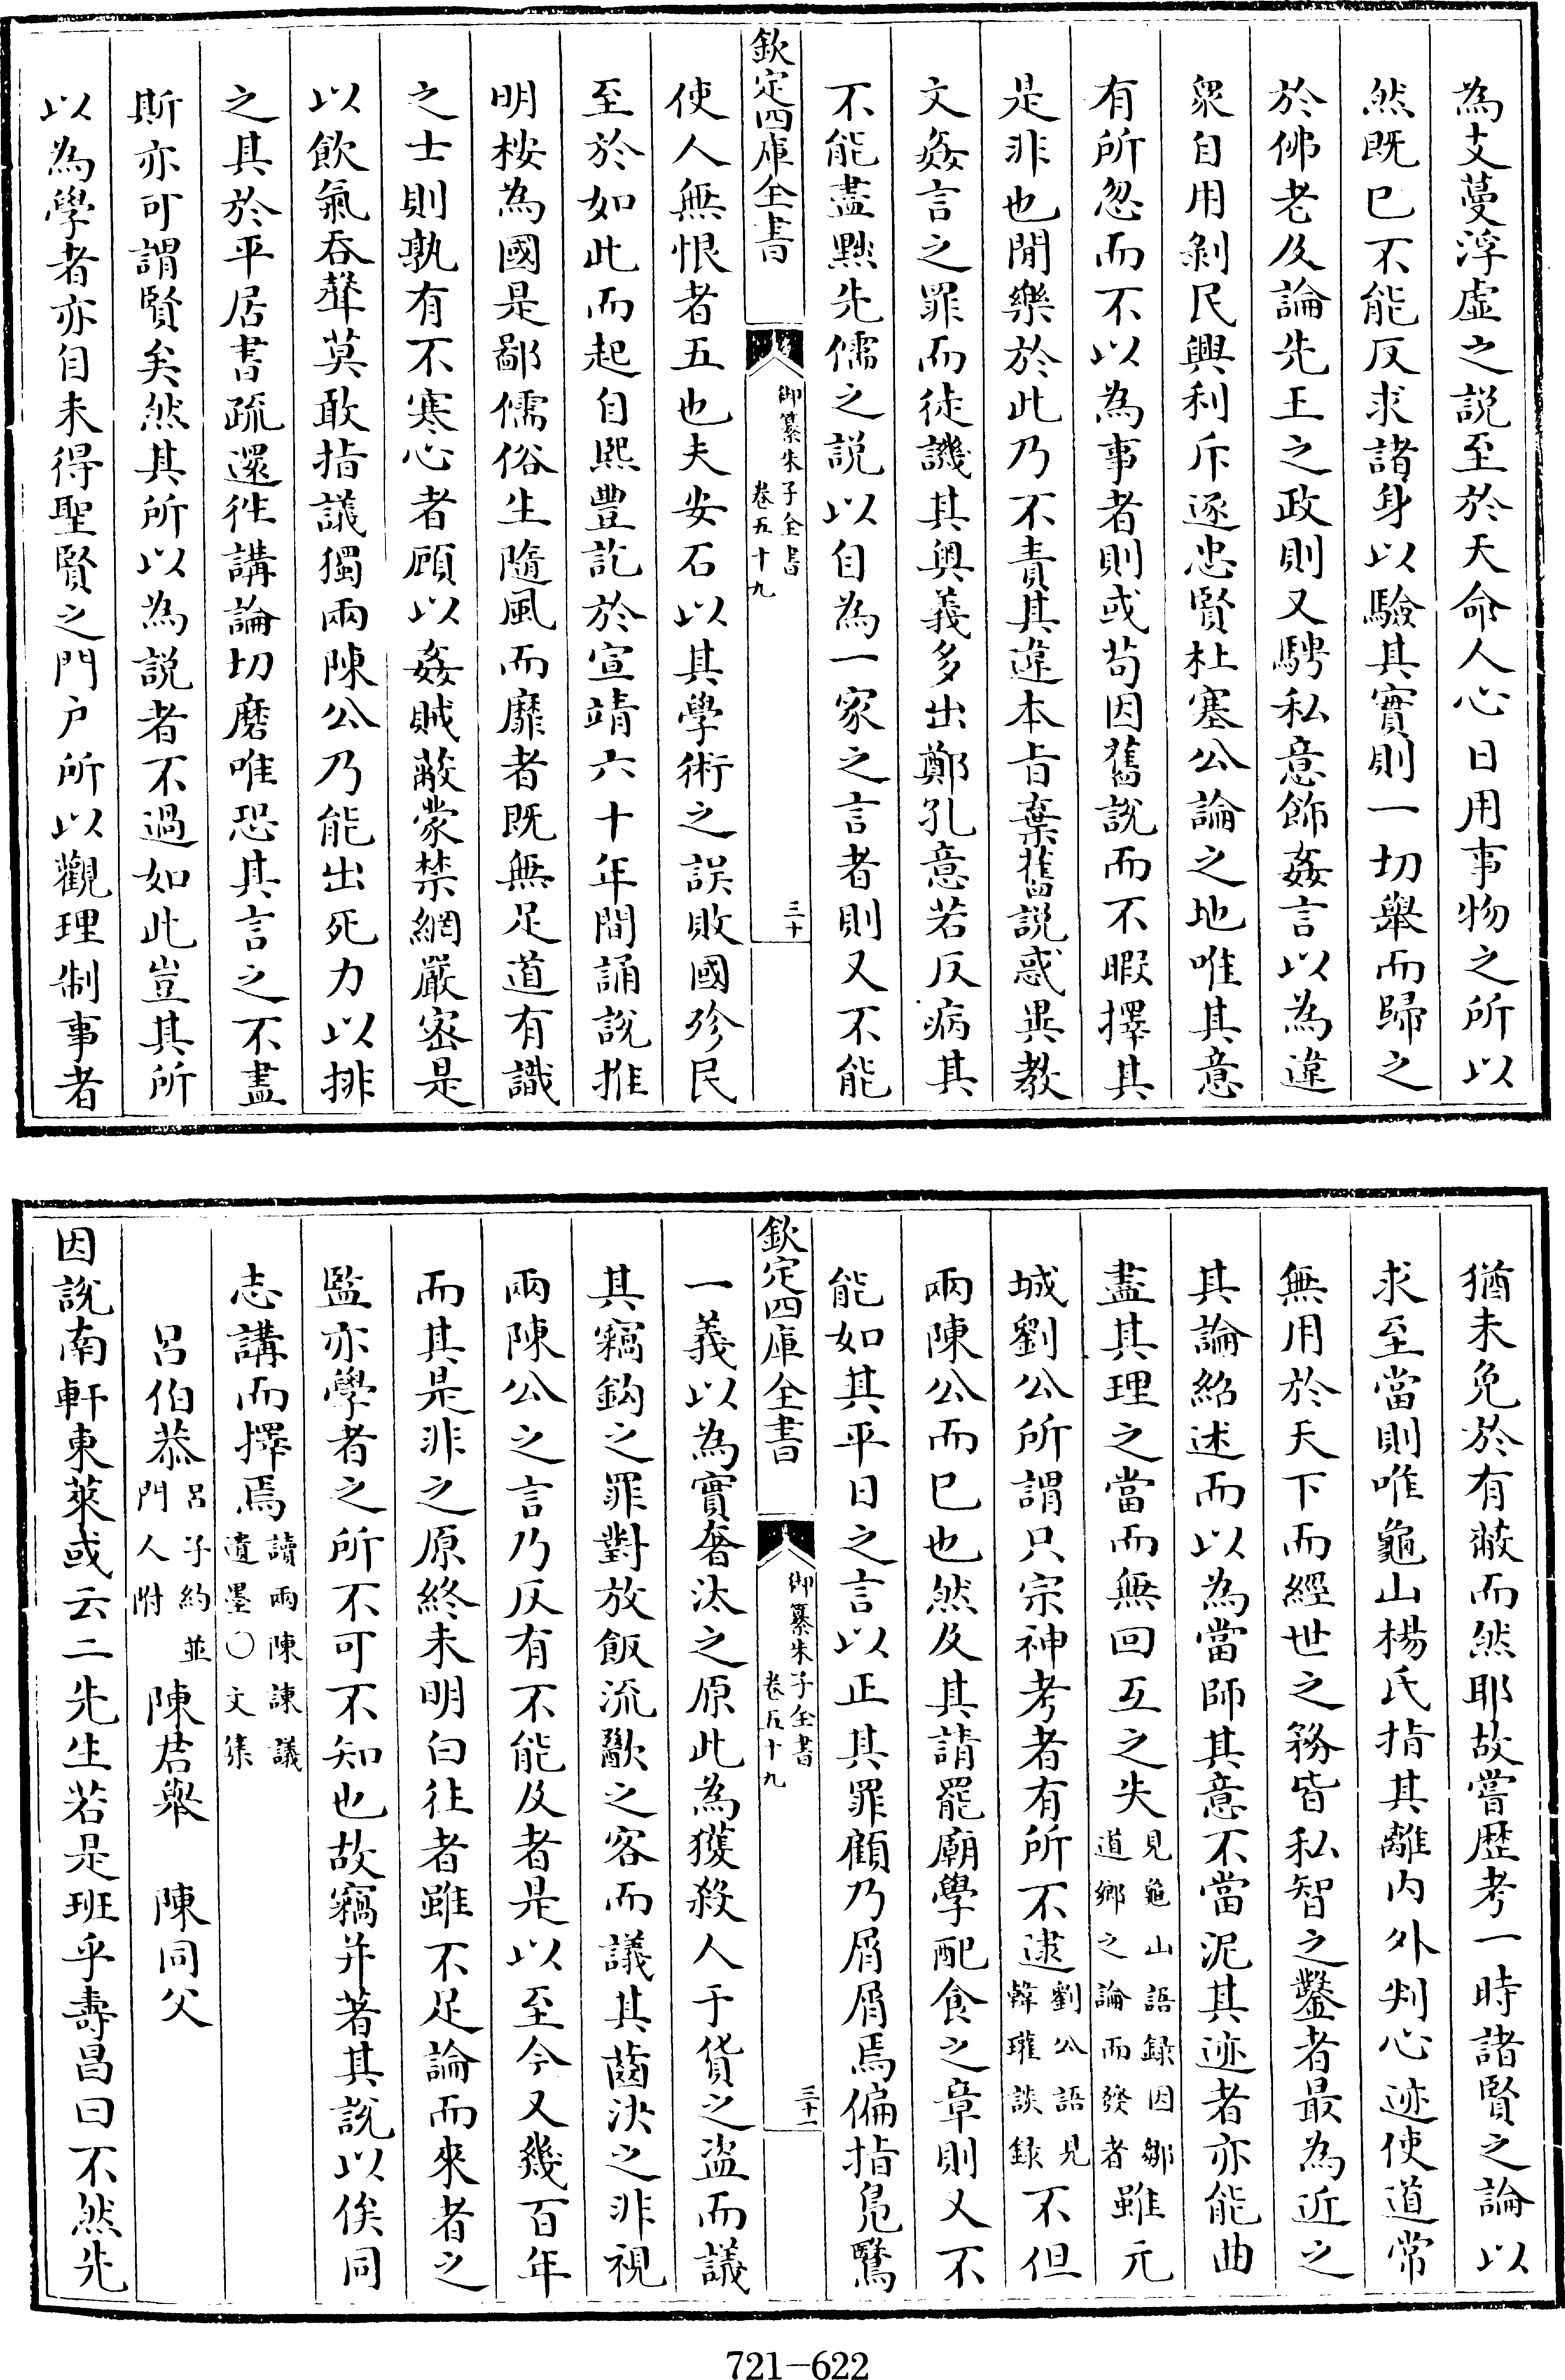 為支蔓浮虛之説至於天命人心日用事物之所以
然既已不能反求諸身以驗其實則一切舉而歸之
於佛老及論先王之政則又騁私意飾姦言以為違
衆自用剝民興利斥逐忠賢杜塞公論之地唯其意
有所忽而不以為事者則或茍因舊説而不暇擇其
是非也閒樂於此乃不責其違本旨棄舊説惑異教
文姦言之罪而徒譏其奥義多出鄭孔意若反病其
不能盡黜先儒之説以自為一家之言者則又不能
欽定四庫全書
御纂朱子全書
卷五十九
三十
使人無恨者五也夫安石以其學術之誤敗國殄民
至於如此而起自熙豐訖於宣靖六十年間誦説推
明桉為國是鄙儒俗生隨風而靡者既無足道有識
之士則孰有不寒心者顧以姦賊蔽蒙禁網嚴宻是
以飲氣吞聲莫敢指議獨兩陳公乃能出死力以排
之其於平居書疏還徃講論切磨唯恐其言之不盡
斯亦可謂賢矣然其所以為説者不過如此豈其所
以為學者亦自未得聖賢之門户所以觀理制事者
猶未免於有蔽而然耶故嘗歴考一時諸賢之論以
求至當則唯龜山楊氏指其離内外判心迹使道常
無用於天下而經世之務皆私智之鑿者最為近之
其論紹述而以為當師其意不當泥其迹者亦能曲
盡其理之當而無回互之失見龜山語録因鄒道鄉之論而發者雖元
城劉公所謂只宗神考者有所不逮劉公語見韓瓘談録不但
兩陳公而已也然及其請罷廟學配食之章則又不
能如其平日之言以正其罪顧乃屑屑焉偏指鳬鷖
欽定四庫全書
御纂朱子全書
卷五十九
三十一
一義以為實奢汰之原此為獲殺人于貨之盜而議
其竊鈎之罪對放飯流歠之客而議其齒決之非視
兩陳公之言乃反有不能及者是以至今又幾百年
而其是非之原終未明白往者雖不足論而來者之
監亦學者之所不可不知也故竊并著其説以俟同
志講而擇焉讀兩陳諫議遺墨〇文集
呂伯恭呂子約並門人附　陳君舉　陳同父
因説南軒東萊或云二先生若是班乎壽昌曰不然先
721-622